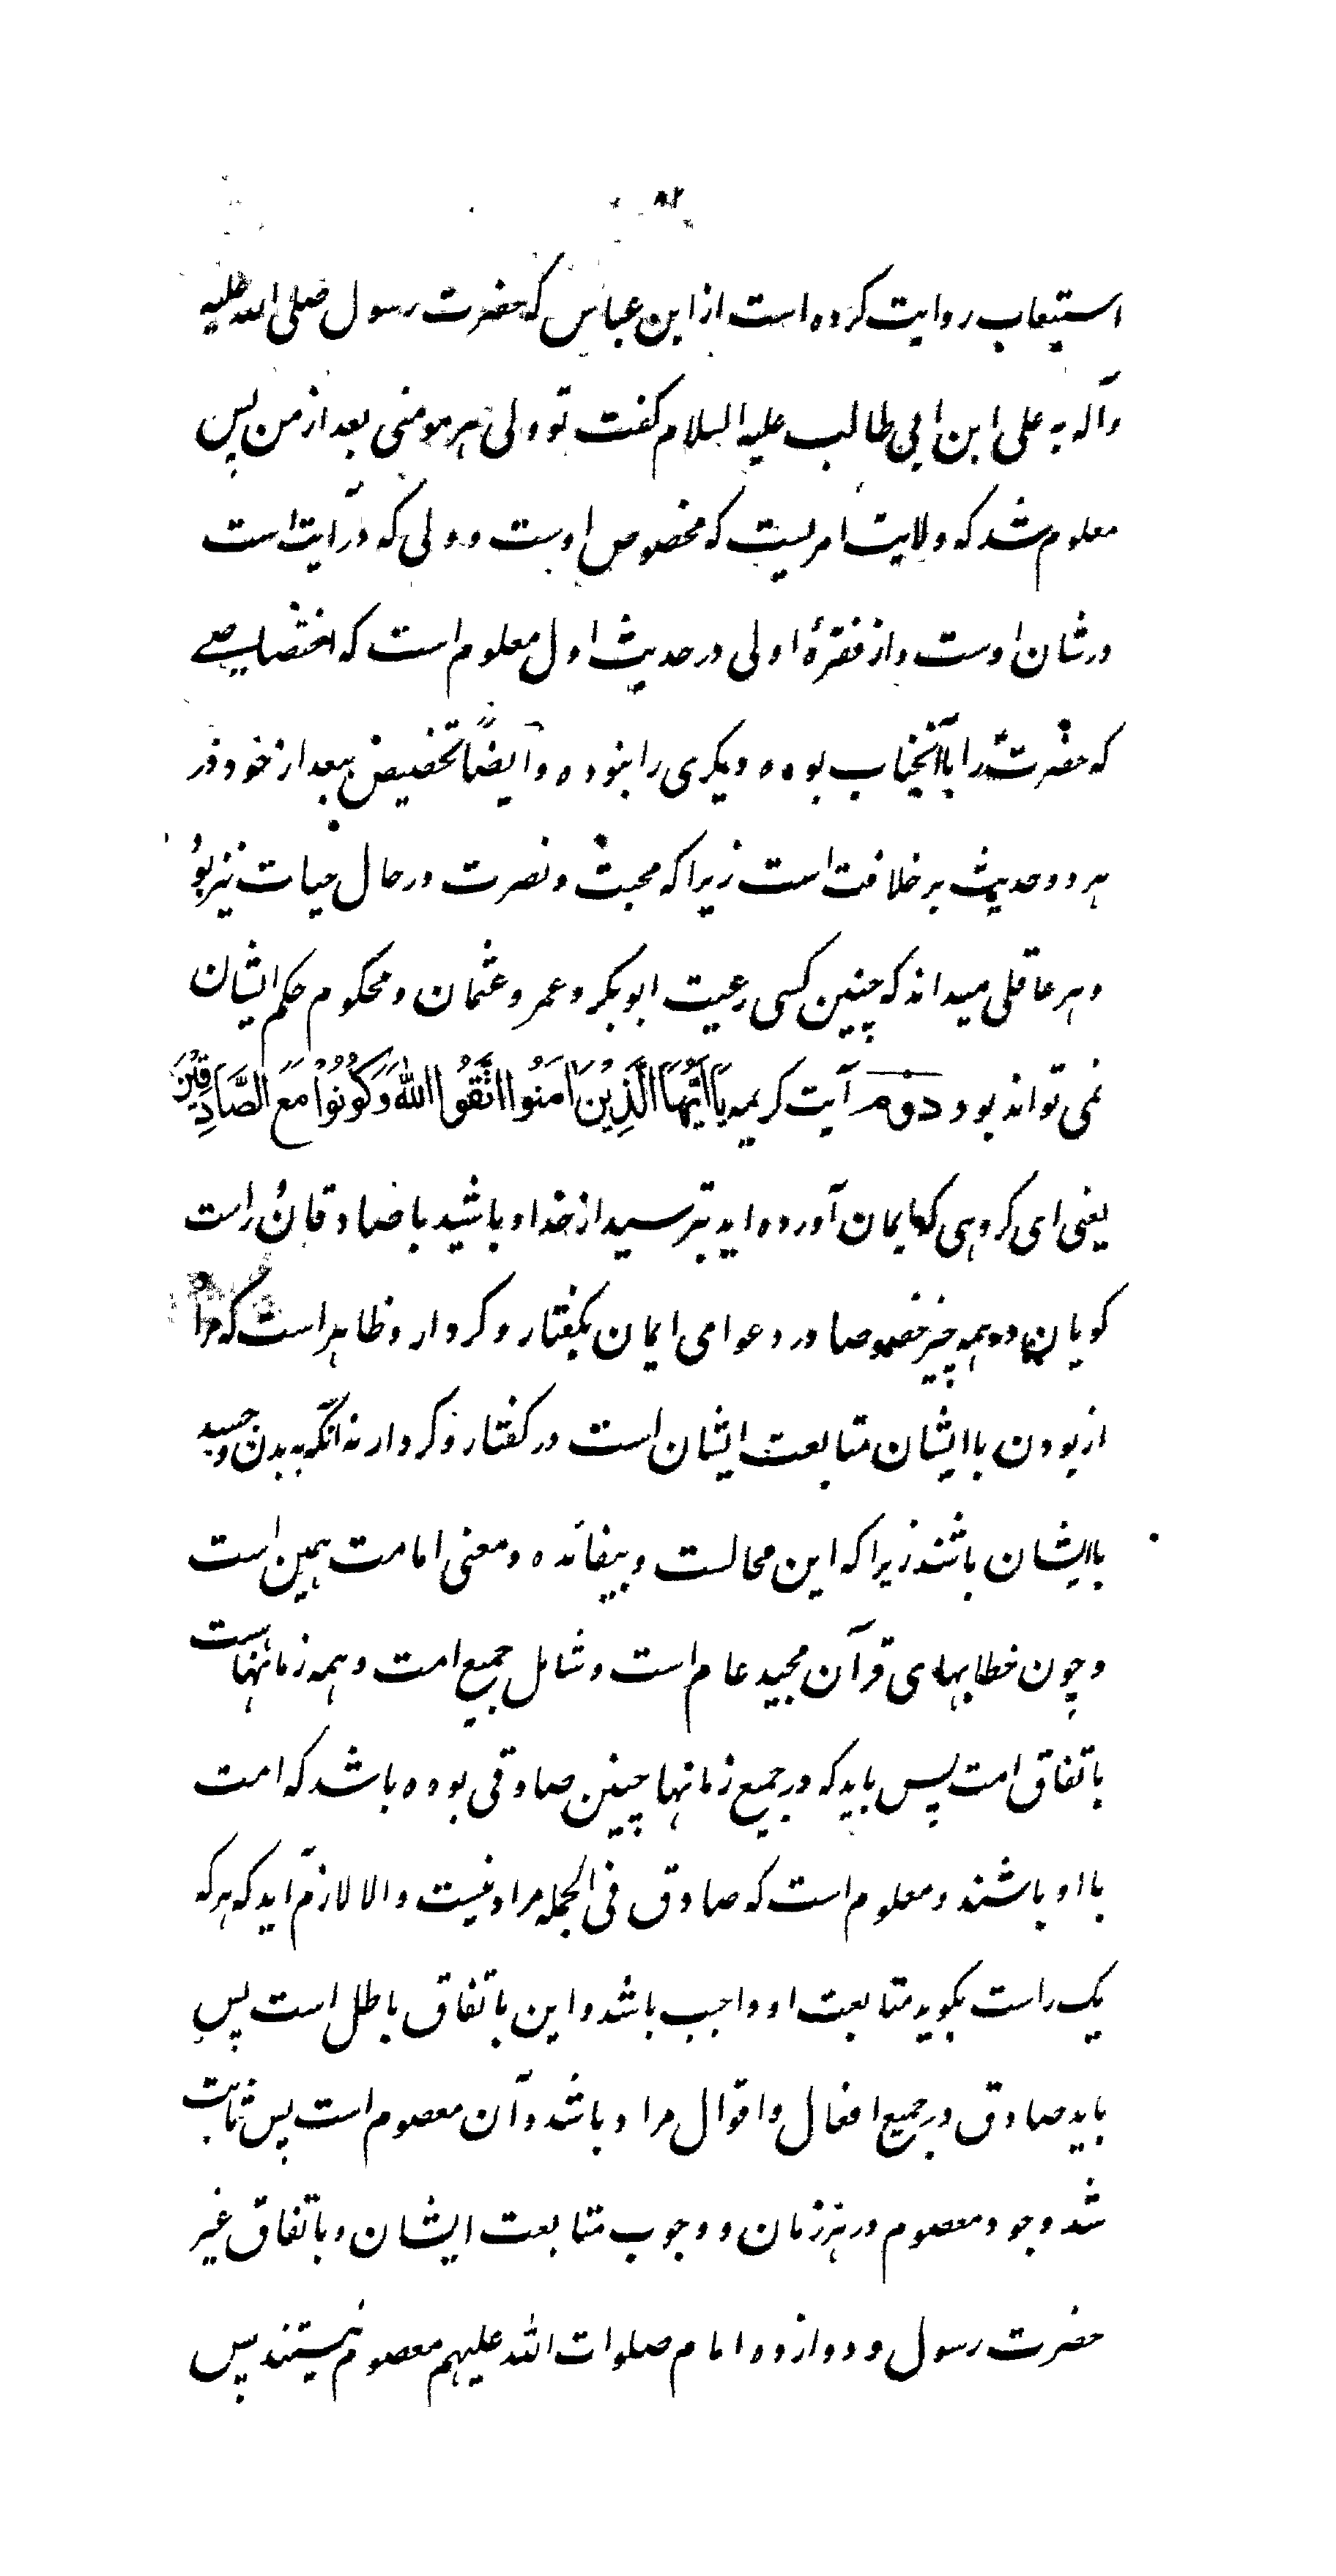 ۸۲
استیعاب روایت کرده است از ابن عباس که حضرت رسول صلی الله علیه
وآله به علی ابن ابی طالب علیه السلام کفت تو ولی هر مومنی بعد از من پس
معلوم شد که ولایت امریست که مخصوص اوست و ولی که در آیت است
در شان اوست و از فقرهٔ اولی در حدیث اول معلوم است که اختصاصی
که حضرت را باآنجناب بوده دیکری را نبوده و ایضاً تخصیص ببعد از خود در
هر دو حدیث بر خلافت است زیرا که محبت و نصرت در حال حیات نیز بود
و هر عاقلی میداند که چنین کسی رعیت ابوبکر و عمر و عثمان و محکوم حکم ایشان
نمی تواند بود دوم آیت کریمه یَا اَیُّهَا الَّذِیْنَ اٰمَنُوا اتَّقُوا اللّٰهَ وَکُوْنُوْا مَعَ الصَّادِقِیْنَ
یعنی ای کروهی که ایمان آورده اید بترسید از خدا و باشید با صادقان و راست
کویان در همه چیز خصوصا در دعوامی ایمان بکفتار و کردار و ظاهر است که مراد
از بودن با ایشان متابعت ایشان است در کفتار و کردار نه انکه به بدن و جسد
با ایشان باشند زیرا که این محالست و بیفائده و معنی امامت همین است
و چون خطابهای قرآن مجید عام است و شامل جمیع امت و همه زمانهاست
باتفاق امت پس باید که در جمیع زمانها چنین صادقی بوده باشد که امت
با او باشند و معلوم است که صادق فی الجمله مراد نیست والا لازم آید که هر که
یک راست بکوید متابعت او واجب باشد و این باتفاق باطل است پس
باید صادق در جمیع افعال و اقوال مراد باشد و آن معصوم است پس ثابت
شد وجود معصوم در هر زمان و وجوب متابعت ایشان و باتفاق غیر
حضرت رسول و دوازده امام صلوات الله علیهم معصوم نیستند پس